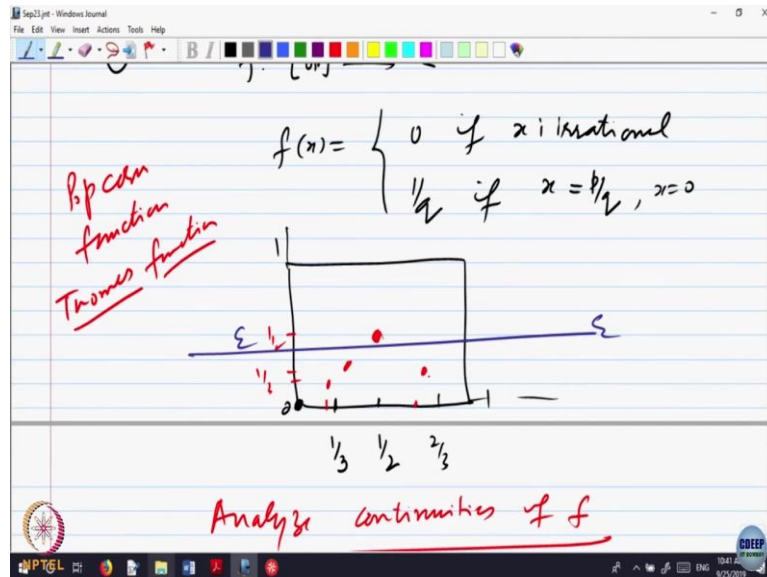 Sep23.jnt - Windows Journal
File Edit View Insert Actions Tools Help
B I
f(x)= { 0 if x i irrational
1/q if x = p/q, x=0
Popcorn
function
Thomes function
1
ε 1/2 ε
1/3
0 1
1/3 1/2 2/3
Analyze continuities of f
NPTEL
CDEEP
IIT BOMBAY
ENG
10:41 AM
9/25/2019